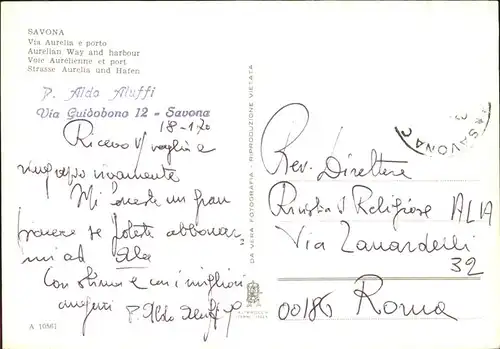 SAVONA
Via Aurelia e porto
Aurelian Way and harbour
Voie Aurélienne et port
Strasse Aurelia und Hafen
P. Aldo Aluffi
Via Guidobono 12 - Savona
18-1-70
Ricevo
ringrazio vivamente
Mi farete un gran
piacere se potete abbonar
mi ad Ala
Con stima e con i migliori
auguri P. Aldo Aluffi
A 10861
DA VERA FOTOGRAFIA - RIPRODUZIONE VIETATA
SAVONA C
Rev. Direttore
Rivista Religiose ALA
Via Zanardelli
32
00186 Roma